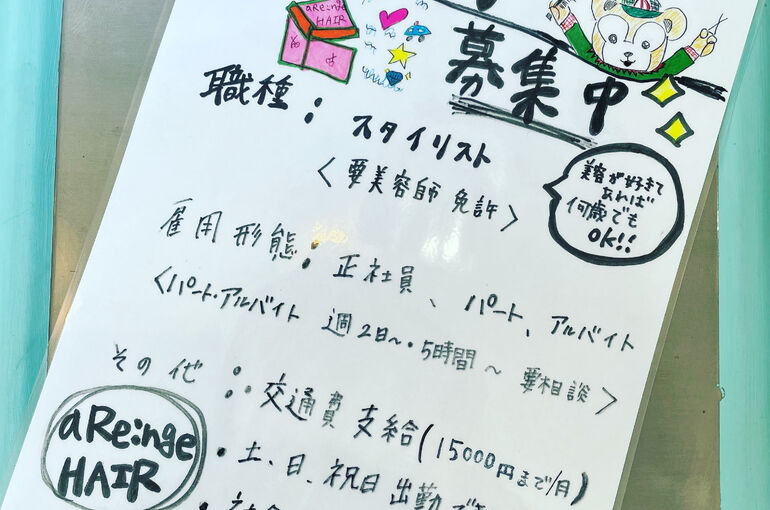 aRe:nge
HAIR
募集中
職種:
スタイリスト
<要美容師免許>
美容が好きで
あれば
何歳でも
OK!!
雇用形態: 正社員、パート、アルバイト
<パート・アルバイト 週2日〜・5時間〜 要相談>
その他:・交通費支給(15000円まで/月)
・土、日、祝日出勤でき
aRe:nge
HAIR